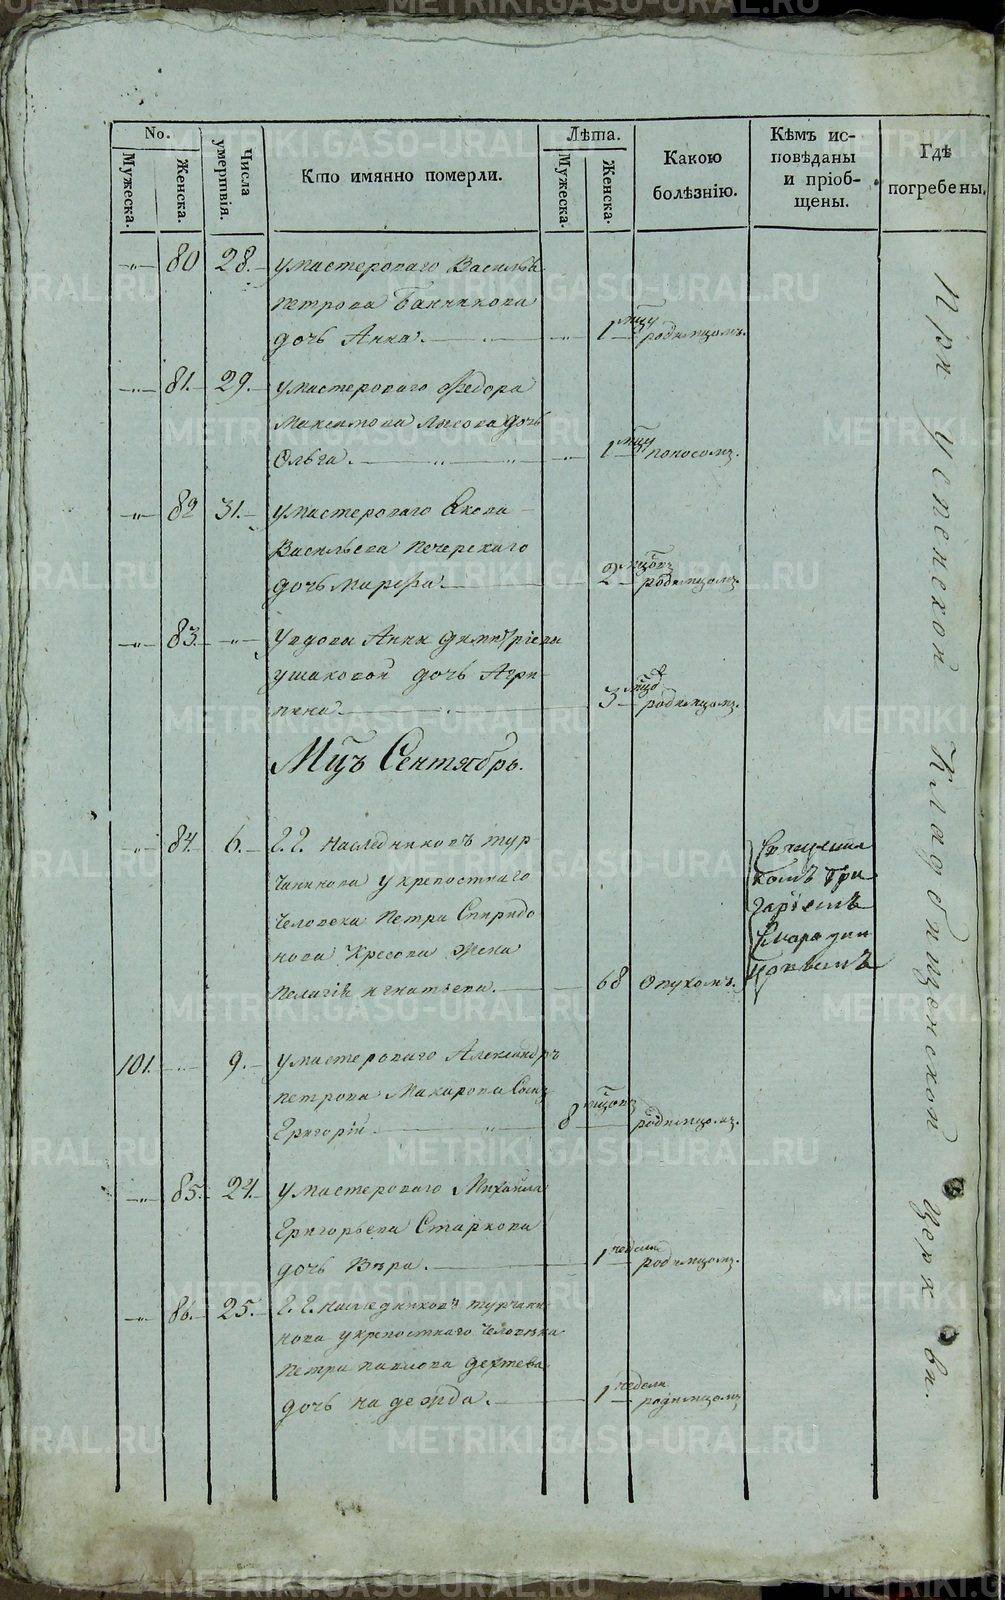 No.
Мужеска.
Женска.
Числа умертвія.
Кто имянно померли.
Лѣта.
Мужеска.
Женска.
Какою болѣзнію.
Кѣмъ исповѣданы и пріобщены.
Гдѣ погребены.
80 28. у мастероваго Василья
Петрова Банникова
дочь Анна. 1 мцу родимцомъ.
81. 29. у мастероваго Федора
Максимова Лысова дочь
Ольга. 1 мцу поносомъ.
82 31. у мастероваго Якова
Васильева Печерскаго
дочь Марфа. 2 мцовъ родимцомъ.
83. У вдовы Анны Димитріевы
Ушаковой дочь Агри-
пина 3 родимцомъ.
Мцъ Сентябрь.
84. 6. Г. Г. Наследниковъ Тур-
чанинова у крепостнаго
человека Петра Спиридо
нова Кресова жена
Пелагія Игнатьева. 68 Опухомъ.
Священни
комъ Гри
горіемъ
101. 9. у мастероваго Александръ
Петрова Макарова Сынъ
Григорій 8 мцовъ родимцомъ.
85. 24. у мастероваго Михайла
Григорьева Старкова
дочь Вѣра. 1 недели родимцомъ.
86. 25. Г. Г. Наследниковъ Турчани-
нова у крепостнаго человека
Петра Павлова Дехтева
дочь Надежда. 1 недели родимцомъ
При успенской Кладбищенской церкви.
METRIKI.GASO-URAL.RU